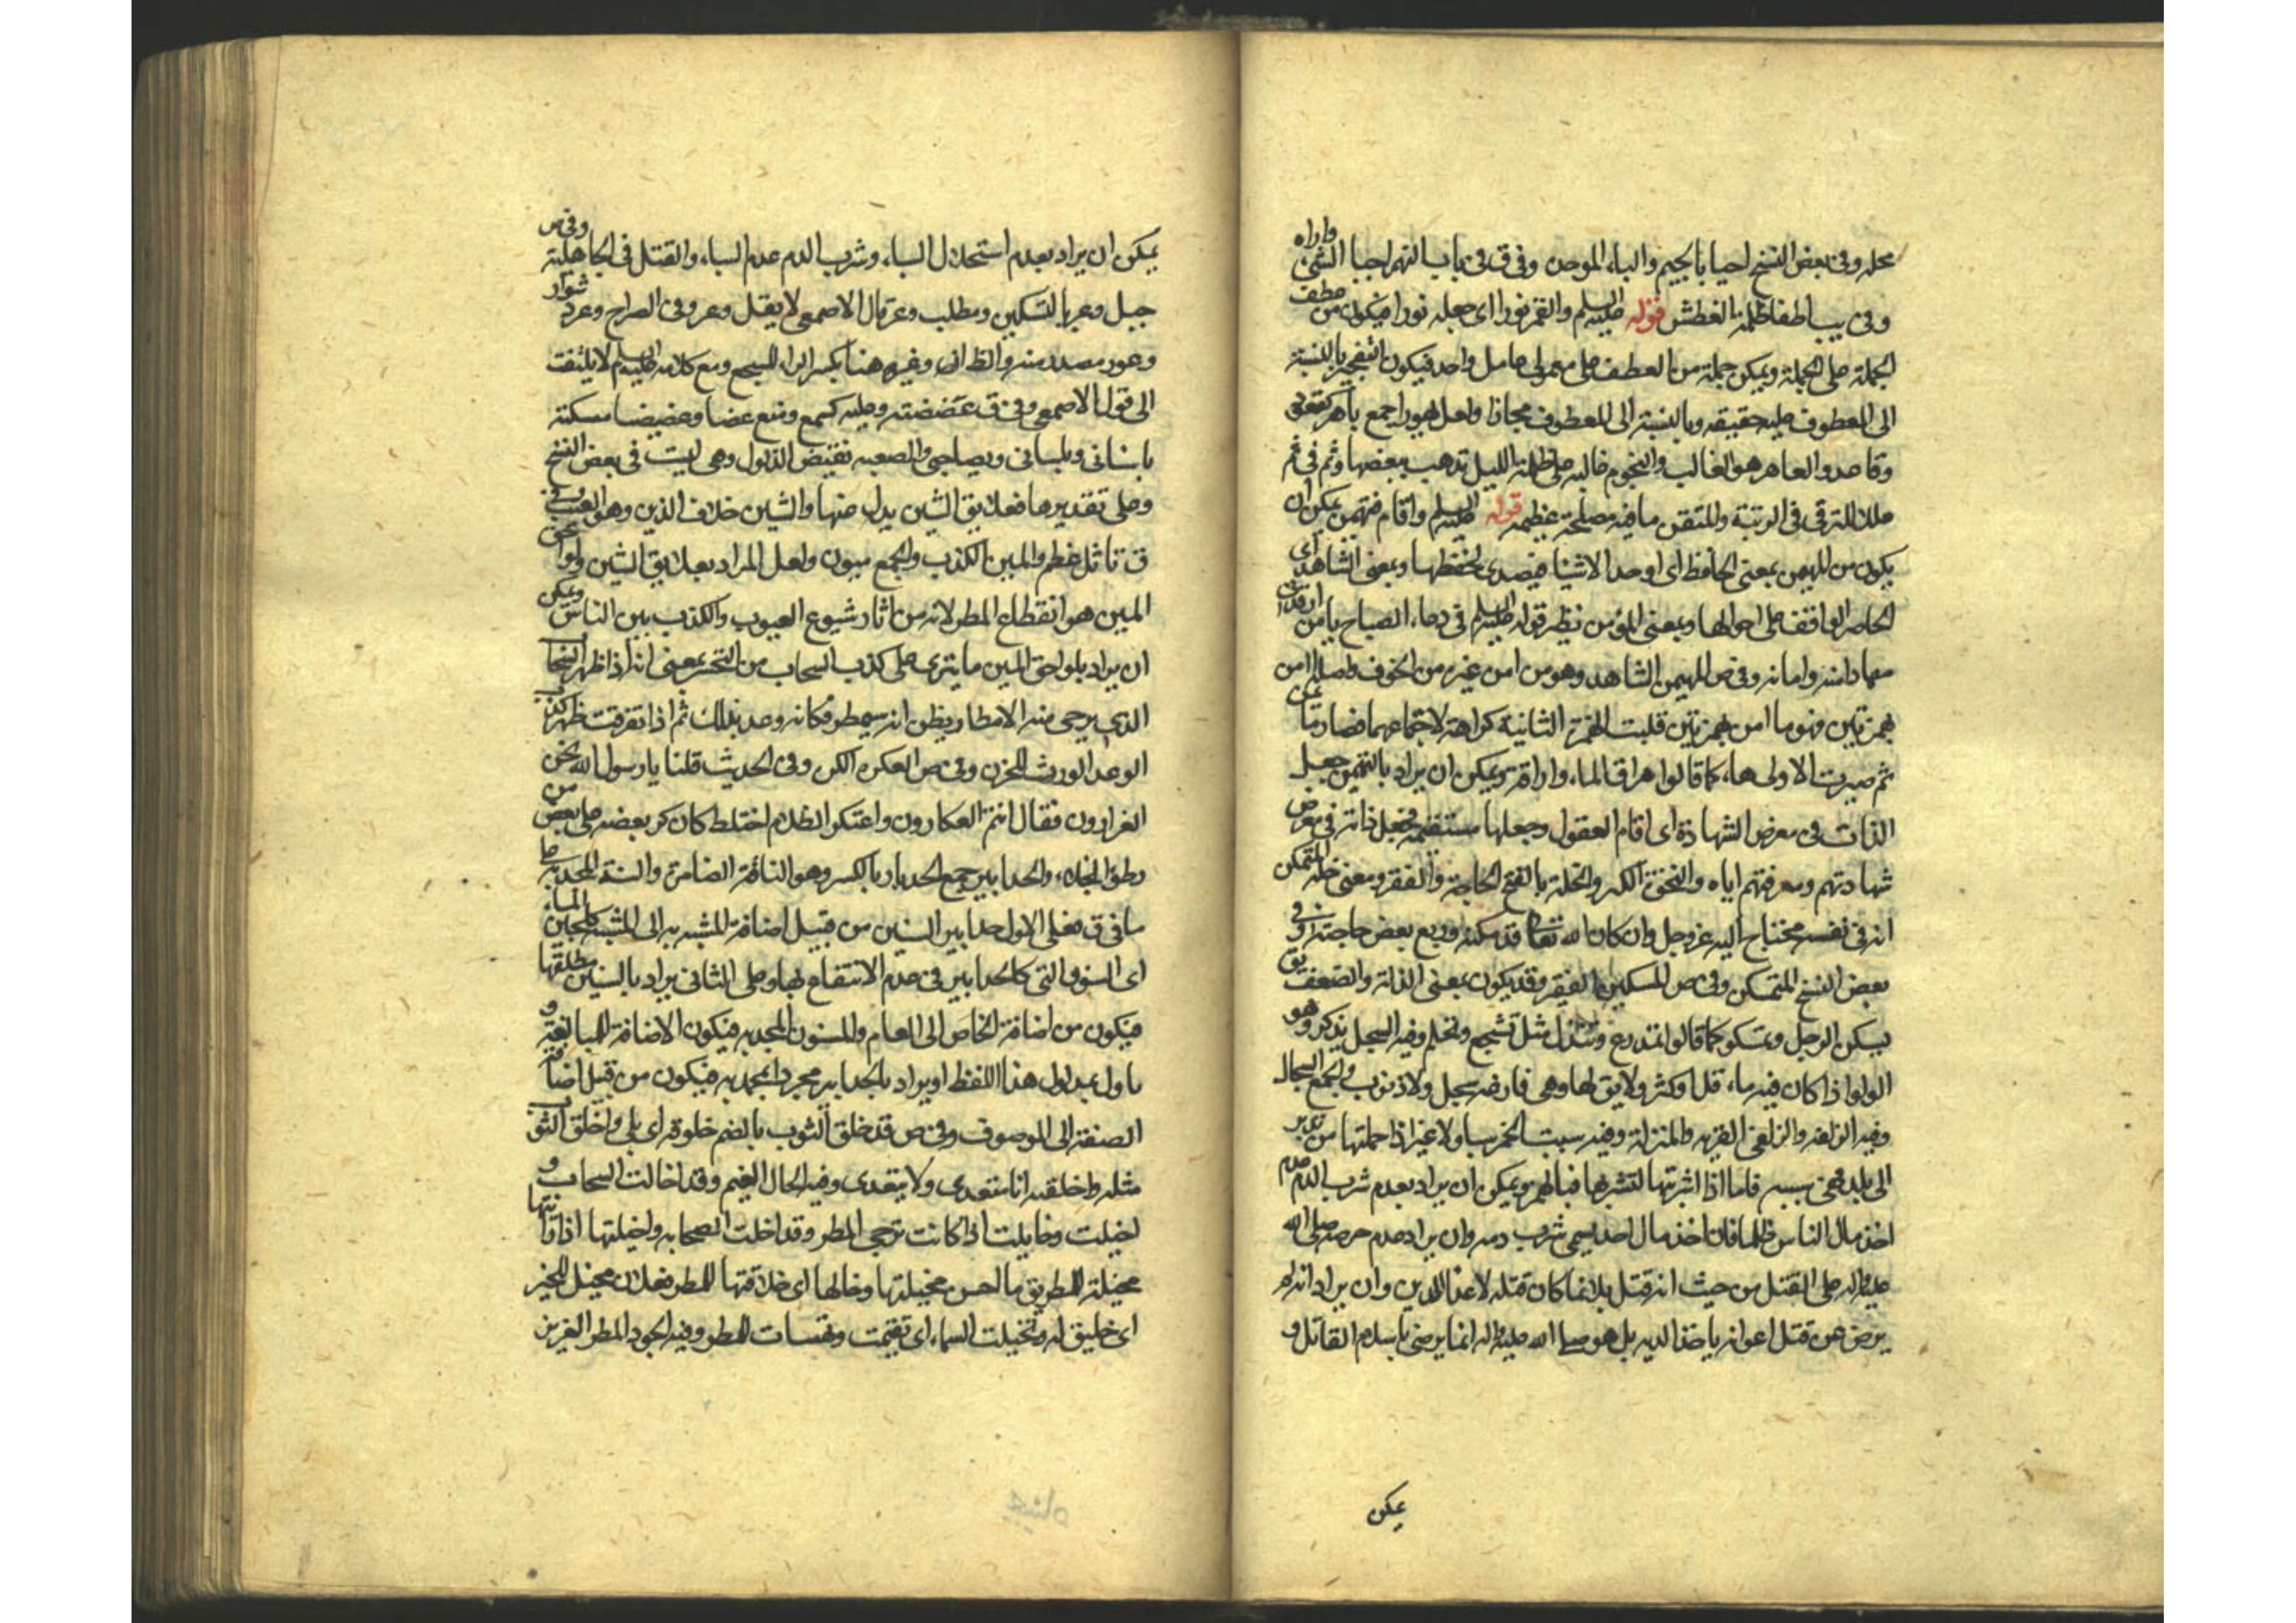 محله وفى بعض النسخ احيا بالجيم والباء الموحده وفى ق فى باب النهر اجبا الشئ واراه
وفى يب اطفاظلمة الغطش قوله عليه السلم والقمر نورا اى جعله نورا فيكون من عطف
الجملة على الجملة ويمكن جملة من العطف على معمولى عامل واحد فيكون بالنسبة
الى المعطوف عليه حقيقه وبالنسبة الى المعطوف مجازا ولعل
وقاصد والعاهر هو الغالب والنجوم غالبه على ظلمة الليل تذهب ببعضها وثم فى ثم
ملك للترقى فى الرتبة والمتقن ما فيه مصلحة عظيمه قوله عليه السلم واقام فمهيمن يمكن ان
يكون من المهيمن بمعنى الحافظ اى اوحد الاشيا فيصدى لحفظها وبمعنى الشاهد اى
الحاضر الواقف على احوالها وبمعنى المؤمن نظير قوله عليه السلم فى دعاء الصباح يا من ارقدنى
مهاد امنه وامانه وفى ص المهيمن الشاهد وهو من امن غيره من الخوف واصله اامن
بهمزتين فهو ماامن بهمزتين قلبت الهمزة الثانية كراهة لاجتماعهما فصار
ثم صيرت الاولى هاء كما قالوا هراق الماء واراقه ويمكن ان يراد بالتهيمن جعل
الذات فى معرض الشهادة اى اقام العقول وجعلها مستقيمة فجعل ذاته فى معرض
شهادتهم ومعرفتهم اياه والنخوة الكبر والخلة بالفتح الحاجة والفقر ومعنى خلة المتمكن
انه فى نفسه محتاج اليه عز وجل وان كان الله تعالى قد مكنه ورفع بعض حاجته وفى
بعض النسخ المتمسكن وفى ص المسكين الفقير وقد يكون بمعنى الذلة والضعف يق
يسكن الرجل وتمسكن كما قالوا تمدرع وتمندل مثل تشجع وتحلم وفيه السجل يذكر وهو
الدلو اذا كان فيه ماء قل او كثر ولا يق لها وهى فارغه سجل ولا ذنوب والجمع السجال
وفيه الزلفه والزلفى القربه والمنزلة وفيه سبت الخمر سباولا غير اذا حملتها من بلد
الى بلد فهى سبيه فاما اذا اشريتها لتشربها فبالهمز ويمكن ان يراد بعدم شرب الدم عدم
اخذ مال الناس ظلما فان اخذ مال احد يسمى شرب دمه وان يراد عدم حرصه صلى الله
عليه واله على القتل من حيث انه قتل بل انما كان قتله لاعداء الدين وان يراد انه لم
يرض عن قتل اعوانه باخذ الديه بل هو صلى الله عليه واله انما يرضى باسلام القاتل و
يمكن
يمكن ان يراد بعدم استحلال السباء وشرب الدم عدم السباء والقتل فى الجاهلية وفى ص
جبل وعر بالتسكين ومطلب وعر قال الاصمعى لا يقل وعر وفى الصراح وعر دشوار
وعور مصدر منه والظ ان وغيره هنا بكسر الراء للسجع ومع كلامه عليه السلم لا يلتفت
الى قول الاصمعى وفى ق عضضته وعليه كسمع ومنع عضا وعضيضا مسكته
باسنانى وبلسانى وبصاحبى والصعبه نقيض الذلول وهى ليست فى بعض النسخ
وعلى تقديرها فعلايق الشين بدل منها والشين خلاف الزين وهو العيب وفى
ق تاثل عظم والمين الكذب والجمع ميون ولعل المراد بعلايق الشين ولواحق
المين هو انقطاع المطر لانه من اثار شيوع العيوب والكذب بين الناس ويمكن
ان يراد بلواحق المين ما يترى على كذب السحاب من التحسر بمعنى انه اذا ظهر السحاب
الذى يرجى منه الامطار يظن انه سيمطر فكانه وعد بذلك ثم اذا تفرقت ظهر كذب
الوعد المورث للحزن وفى ص العكره الكره وفى الحديث قلنا يا رسول الله نحن
الفرارون فقال انتم العكارون واعتكر الظلام اختلط كان كر بعضه على بعض من
بطؤ انجلاءه والحدابير جمع الحدبار بالكسر وهو الناقة الضامرة والسنة المجدبه على
ما فى ق فعلى الاول حدابير السنين من قبيل اضافة المشبه به الى المشبه كلجين الماء
اى السنون التى كالحدابير فى عدم الانتفاع بها وعلى الثانى يراد بالسنين مطلقها
فيكون من اضافة الخاص الى العام والسنون المجدبه فيكون الاضافة للمبالغة و
ناول بمدلول هذا اللفظ او يراد بالحدابير مجرد المجدبه فيكون من قبيل اضافة
الصفة الى الموصوف وفى ص قد خلق الثوب بالضم خلوقة اى بلى واخلق الثوب
مثله واخلقته انا متعدى ولا يتعدى وفيه الخال الغيم وقد اخالت السحاب و
اخيلت وخايلت اذا كانت ترجى المطر وقد اخلت السحابه واخيلتها اذا رايتها
مخيلة للمطر يق ما احسن مخيلتها وخالها اى خلاقتها للمطر فعلان مخيل للخير
اى خليق له وتخيلت السماء اى تغيمت وتهيات للمطر وفيه الجود المطر الغزير